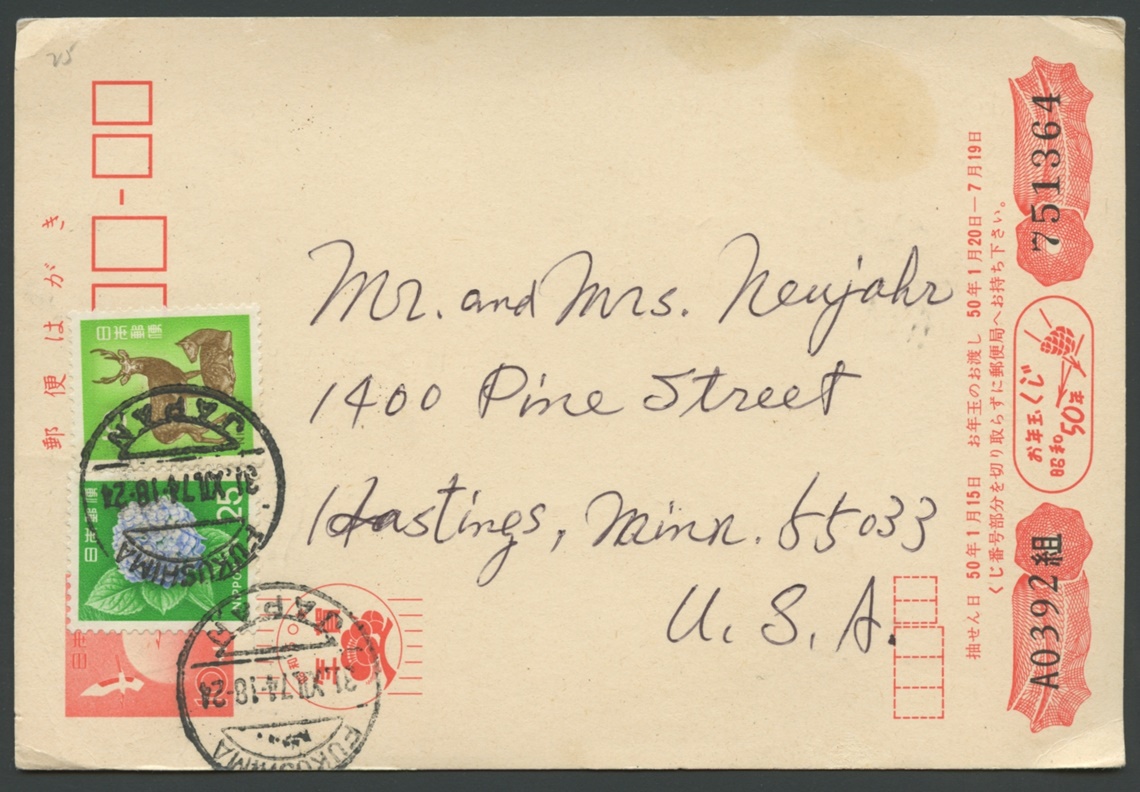 25
郵便はがき
Mr. and Mrs. Neujahr
1400 Pine Street
Hastings, Minn. 55033
U. S. A.
日本郵便
日本郵便
25
NIPPON
JAPAN
31.XII.74.18-24
FUKUSHIMA
JAPAN
31.XII.74.18-24
FUKUSHIMA
日本
751364
お年玉くじ
昭和50年
A0392組
抽せん日 50年1月15日 お年玉のお渡し 50年1月20日―7月19日
くじ番号部分を切り取らずに郵便局へお持ち下さい。